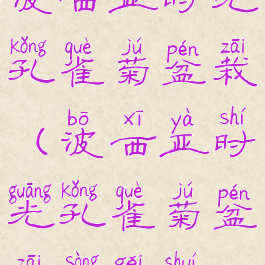 波西亚时光
kǒng què jú pén zāi
孔雀菊盆栽
bō xī yà shí
（波西亚时
guāng kǒng què jú pén
光孔雀菊盆
zāi sòng gěi shuí